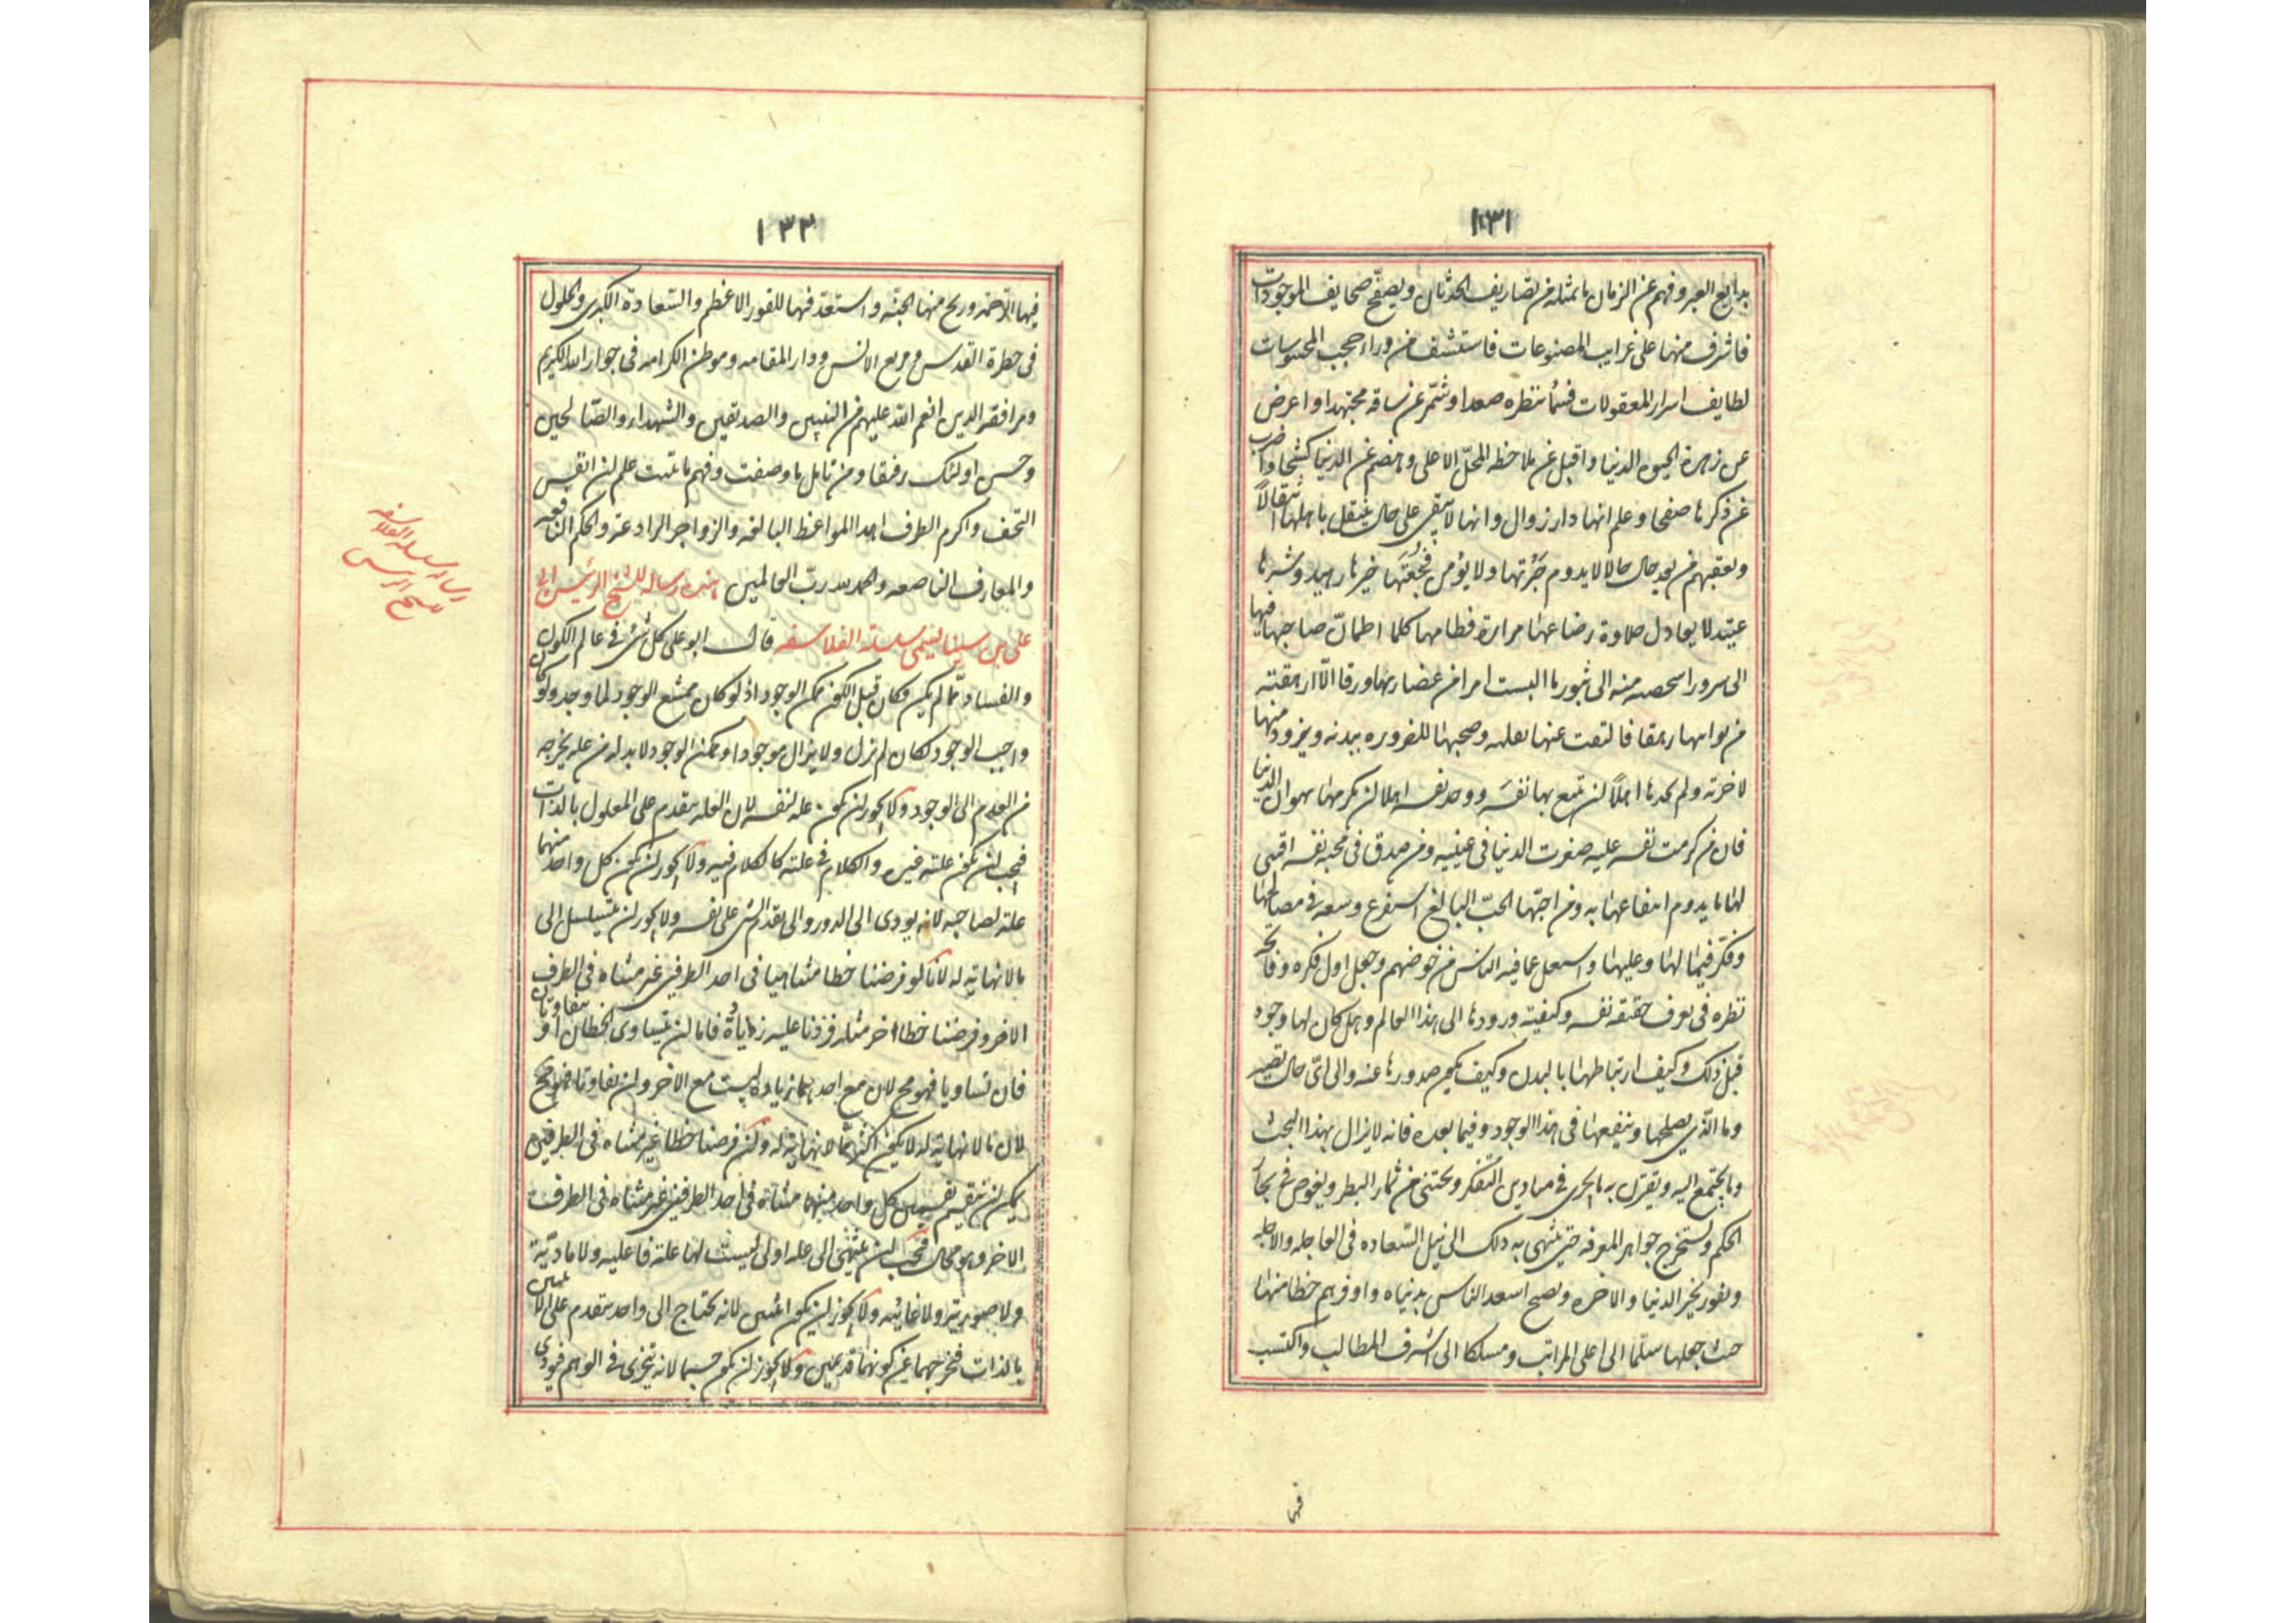 ١٣١
بدايع العبر وفهم عن الزمان ما تمثله من تصاريف الحدثان وتصفح صحايف الموجودات
فاشرف منها على غرايب المصنوعات فاستشف من وراء حجب المحسوسات
لطايف اسرار المعقولات فسما بنظره صعدا وشمّر عن ساقه مجتهدا واعرض
عن زهرة الحيوه الدنيا واقبل عن ملاحظه المحلّ الاعلى وهضم عن الدنيا كشحا واضرب
عن ذكرها صفحا وعلم انها دار زوال وانها لا تبقى على حال ينتقل باهلها انتقالاً
وتعقبهم من بعد حال حالا لا يدوم ولا يؤمن فجعتها خيرها زهيد وشرها
عتيد لا يعادل حلاوة رضاعها مرارة فطامها كلما اطمأنّ صاحبها فيها
الى سرور اشخصته منه الى ثبور ما البست امرا من غضارتها ورقا الّا ارهقته
من بوايقها رهقا فالتفت عنها بعقله وصحبها للضروره ببدنه ويزود منها
لاخرته ولم يجدها اهلاً لن تمتع بها نفسَه ووجد نفسه اهلا لن يكرمها بهوان الدنيا
فان من كرمت نفسه عليه صغرت الدنيا فى عينيه ومن صدق فى محبه نفسه اقتنى
لها ما يدوم انتفاعها به ومن احبّها الحبّ البالغ استفرغ وسعه فى مصالحها
وفكّر فيما لها وعليها واستعمل عافيه الناس من خوضهم وجعل اول فكره وفاتحة
نظره فى تعرف حقيقه نفسه وكيفيته ورودها الى هذا العالم وهل كان لها وجود
قبل ذلك وكيف ارتباطها بالبدن وكيف يكون صدورها عنه والى اىّ حال تصير
وما الّذى يصلحها وينفعها فى هذا الوجود وفيما بعده فانه لا يزال بهذا البحث
وما يجتمع اليه ويقترن به يجرى فى ميادين التفكر ويجتنى من ثمار النظر ويغوص فى بحار
الحكم ويستخرج جواهر المعرفه حتى ينتهى به ذلك الى نيل السّعاده فى العاجله والاجله
ويفوز بخير الدنيا والاخره ويصبح اسعد الناس بدنياه واوفرهم حظا منها
حيث جعلها سلّما الى اعلى المراتب ومسلكا الى اشرف المطالب واكتسب
فيها
١٣٢
فيها الرّحمة وربح منها الجنّه واستعدّ فيها للفوز الاعظم والسّعادة الكبرى والحلول
فى حظرة القدس ومربع الانس ودار المقامه وموطن الكرامه فى جوار الله الكريم
ومرافقه الذين انعم الله عليهم من النبيين والصديقين والشهداء والصّالحين
وحسن اولئك رفيقا ومن تامّل ما وصفت وفهم ما بيّنت علم لن انفس
التحف واكرم الطرف اهدا المواعظ البالغه والزواجر الرادعة والحكم النافعه
والمعارف الناصعه والحمد لله ربّ العالمين هذه رساله للشيخ الرئيس ابى
على بن سينا يسمى سلسلة الفلاسفه قال ابو على كل شئ فى عالم الكون
والفساد ممّا لم يكن فكان قبل الكون ممكن الوجود اذ لو كان ممتنع الوجود لما وجد ولو كان
واجب الوجود لكان لم يزل ولا يزال موجودا وممكن الوجود لا بد له من عله يخرجه
من العدم الى الوجود ولا يجوز لن يكون عله لنفسه لان العله يتقدم على المعلول بالذات
فيجب لن يكون علته غيره والكلام فى علته كالكلام فيه ولا يجوز لن يكون كل واحد منهما
علة لصاحبه لانه يودى الى الدور والى تقدم الشئ على نفسه ولا يجوز لن يتسلسل الى
ما لا نهاية له لانّا لو فرضنا خطا متناهيا فى احد الطرفين غير متناه فى الطرف
الاخر وفرضنا خطا اخر مثله فزدنا عليه زيادةً فاما لن يتساوى الخطان او يتفاوتان
فان تساويا فهو مح لان مع احدهما زياده ليست مع الاخر ولن تفاوتا فهو مح
لان ما لا نهاية له لا يكون اكثر مما لا نهاية له ولن فرضنا خطا غير متناه فى الطرفين
يمكن لن ينقسم بقسمين كل واحد منهما متناه فى احد الطرفين غير متناه فى الطرف
الاخر وهو محال فيجب لن ينتهى الى عله اولى ليست لها علة فاعليه ولا مادّية
ولا صوريّة ولا غائيه ولا يجوز لن يكون اثنين لانه يحتاج الى واحد يتقدم على الاثنين
بالذات فيخرجهما عن كونهما قديمين ولا يجوز لن يكون جسما لانه يتجزى فى الوهم فيودى
رساله سلسلة الفلاسفه
للشيخ الرئيس